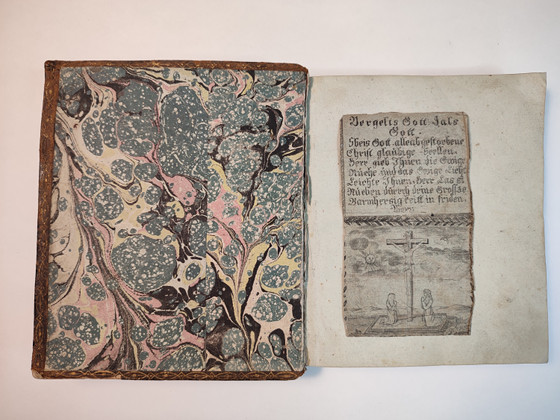 Vergelts Gott Zals
Gott.
Threis Gott allen abgestorbene
Christ glaubige Seellen.
Herr gieb Ihnen die Ewige
Ruehe und das Ewige Liecht
Leichte Ihnen. Herr Las Si
Rueben durch deine Grosse
Barmherzigkeitt in friden.
Amen